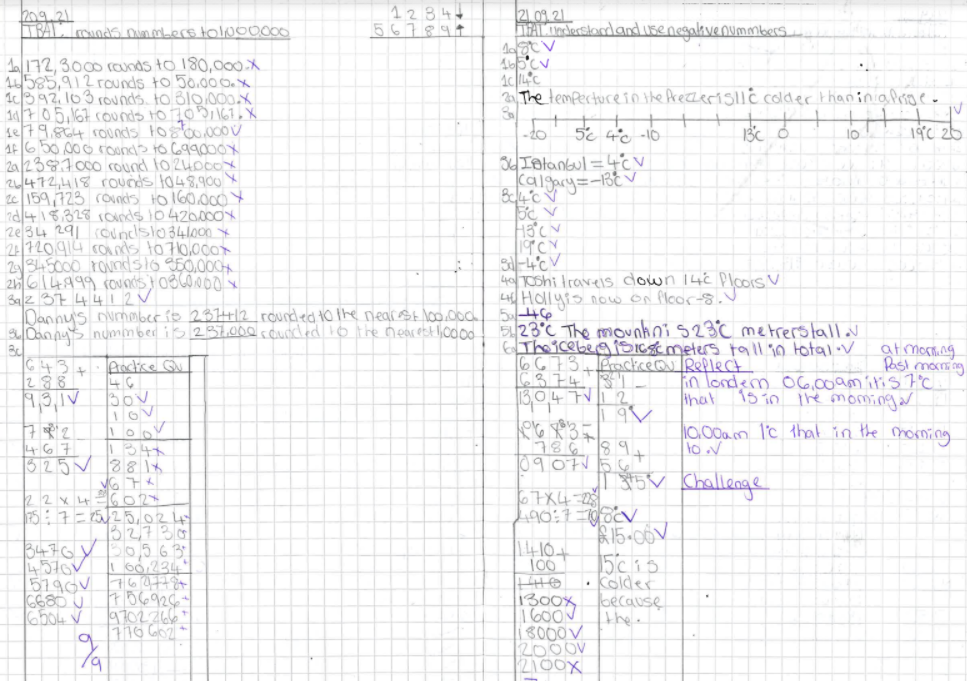 20.9.21
1 2 3 4 ↓
TBAT: rounds nummbers to 1,000000
5 6 7 8 9 ↑
1a 172,3000 rounds to 180,000. x
1b 585,912 rounds to 50,000. x
1c 392,103 rounds to 310,000. x
1d 705,167 rounds to 705,167. x
1e 79,864 rounds to 800,000 ✓
1f 650,000 rounds to 699000 x
2a 2387,000 round to 24000 x
2b 472,418 rounds to 48,900 x
2c 159,723 rounds to 160,000 x
2d 418,328 rounds to 420,000 x
2e 34 291 rounds to 341000 x
2f 720,914 rounds to 710,000 x
2g 345000 rounds to 350,000 x
2h 614,999 rounds to 360,000 x
3a 2 3 7 4 4 1 2 ✓
Danny's nummber is 237412 rounded to the nearest 100,000.
3b Danny's nummber is 237,000 rounded to the nearest 10000
3c
6 4 3 +
2 8 8
9,3,1 ✓
4 6 7
3 2 5 ✓
2 2 x 4 =
175 ÷ 7 = 25 ✓
3476 ✓
4570 ✓
5790 ✓
6680 ✓
6504 ✓
9/9
Practice QU
4 6
3 0 ✓
1 0 ✓
1 0 0 ✓
1 3 4 x
8 8 1 x
6 7 x
6 0 2 x
25,024
32,730
30,563
100,234
756926
9702266
770602
21.09.21
TBAT: understand and use negative nummbers
1a 8°C ✓
1b 5°C ✓
1c 14°C
2a The temperture in the frezzer is 11°C colder than in a frige.
3a
-20 5°C 4°C -10 13°C 0 10 19°C 20
3b Istanbul = 4°C ✓
Calgary = -13°C ✓
3c 4°C ✓
5°C ✓
-13°C ✓
19°C ✓
3d -4°C ✓
4a Toshi travels down 14°C floors ✓
4b Holly is now on floor -8. ✓
5a -46
5b 23°C The mountni s 23°C metrers tall. ✓
6a The iceberg is 168c meters tall in total. ✓
at morning
Past morning
6 6 7 3 +
6 3 7 4
13,047 ✓
7 8 6
0 9 0 7 ✓
67 x 4 = 28
490 ÷ 7 = 70
1410 +
100
1300 x
1600 ✓
18000 ✓
2000 ✓
2100 x
Practice QU
3 1 -
1 2
1 9 ✓
8 9 +
5 6
8°C ✓
£15.00 ✓
15°C is
colder
because
the.
Reflect
in londern 06,00am it is 7°C.
that is in the morning ✓
10.00am 1°C that in the morning
to. ✓
Challenge